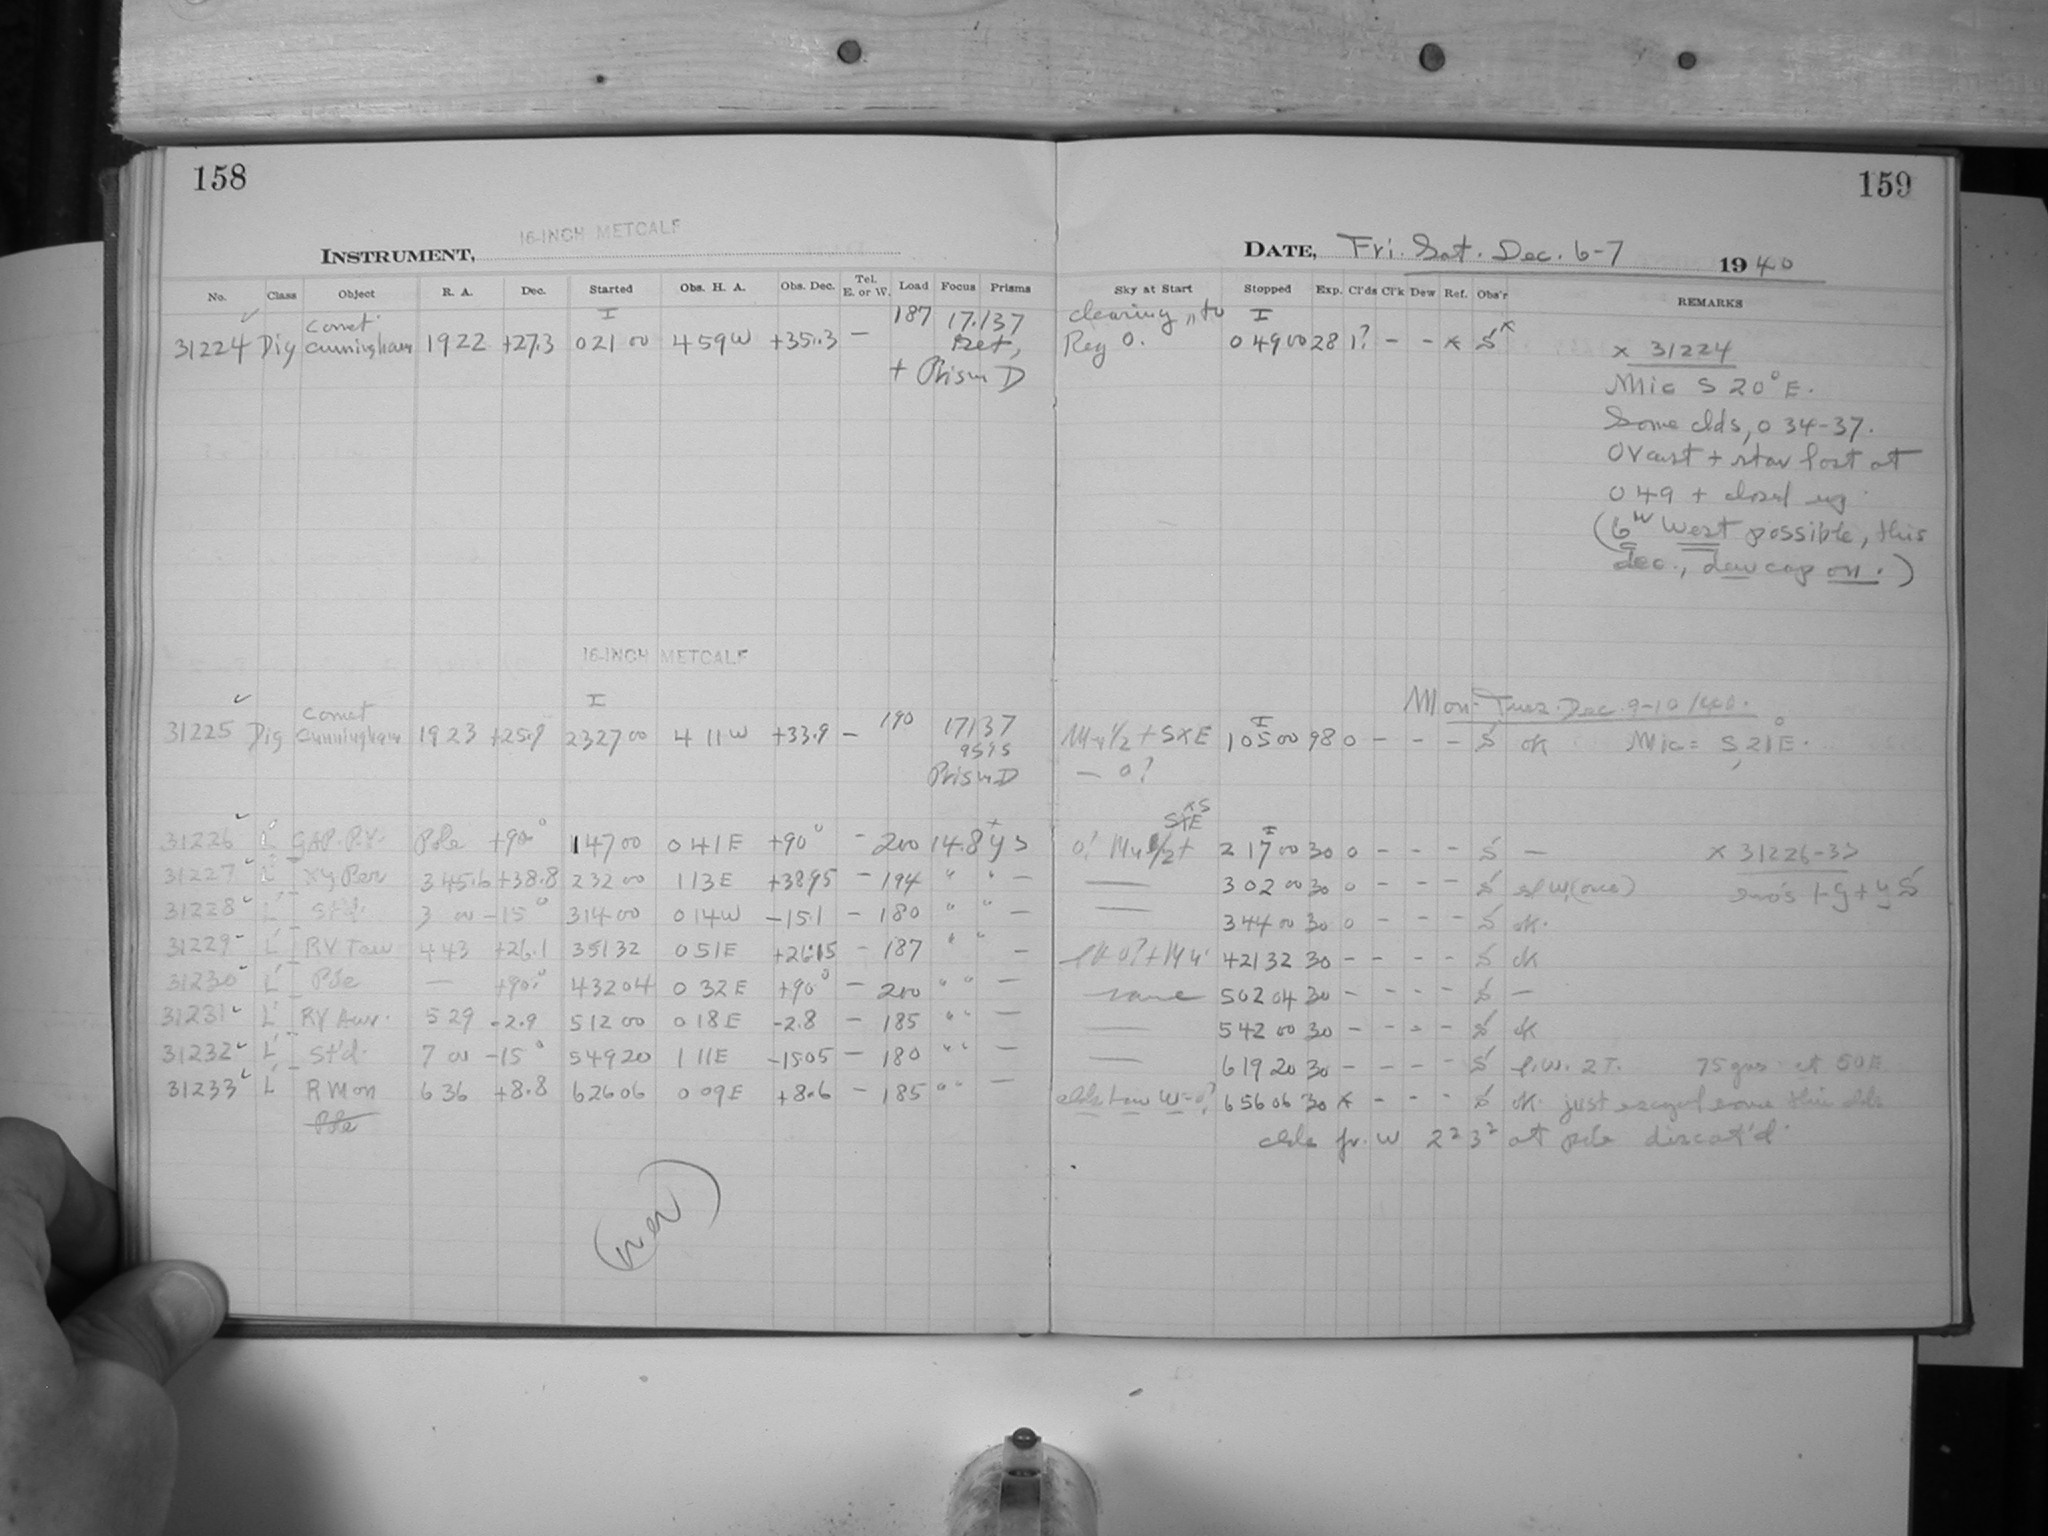 158
159
16-INCH METCALF
INSTRUMENT,
DATE, Fri. Sat. Dec. 6-7 1940
No. Class Object R. A. Dec. Started Obs. H. A. Obs. Dec. Tel. E. or W. Load Focus Prisms Sky at Start Stopped Exp. Cl'ds Cl'k Dew Ref. Obs'r REMARKS
31224 Dig Comet Cunningham 1922 +27.3 I 0 21 00 4 59 W +35.3 — 187 17.137 + Prism D clearing, to Reg 0. I 0 49 00 28 1? - - x S x
x 31224
Mic S 20° E.
Some clds, 0 34-37.
Ovcast + star lost at
0 49 + closed up
(6 W West possible, this
dec., dewcap on.)
16-INCH METCALF
Mon-Tues. Dec. 9-10/40.
31225 Dig Comet Cunningham 1923 +25.9 I 23 27 00 4 11 W +33.9 — 190 17137 9595 Prism D — 0? I 1 05 00 98 0 - - - S ok Mic = S 21° E.
31226 L' Pole +90° 1 47 00 0 41 E +90° - 200 14.8 I 2 17 00 30 0 - - - S — x 31226-33
31227 L' XY Per 3 45.6 +38.8 2 32 00 1 13 E +38.95 - 194 " " — — 3 02 00 30 0 - - - S
31228 L' St'd. 3 00 -15° 3 14 00 0 14 W -15.1 - 180 " " — — 3 44 00 30 0 - - - S ok.
31229 L' RV Tau 4 43 +26.1 3 51 32 0 51 E +26.15 - 187 " " — 4 21 32 30 - - - - S ok
31230 L' Pole — +90° 4 32 04 0 32 E +90° - 200 " " — same 5 02 04 30 - - - - S —
31231 L' RY Aur. 5 29 -2.9 5 12 00 0 18 E -2.8 - 185 " " — — 5 42 00 30 - - - - S ok
31232 L' St'd. 7 00 -15° 5 49 20 1 11 E -15.05 - 180 " " — — 6 19 20 30 - - - - S 2 T. 75 gas at 50 E
31233 L' R Mon 6 36 +8.8 6 26 06 0 09 E +8.6 - 185 " " — clds low W - 0? 6 56 06 30 x - - - S ok. just escaped some thin clds
Pole clds fr. W 2 2 3 2 at pole discat'd.
(over)